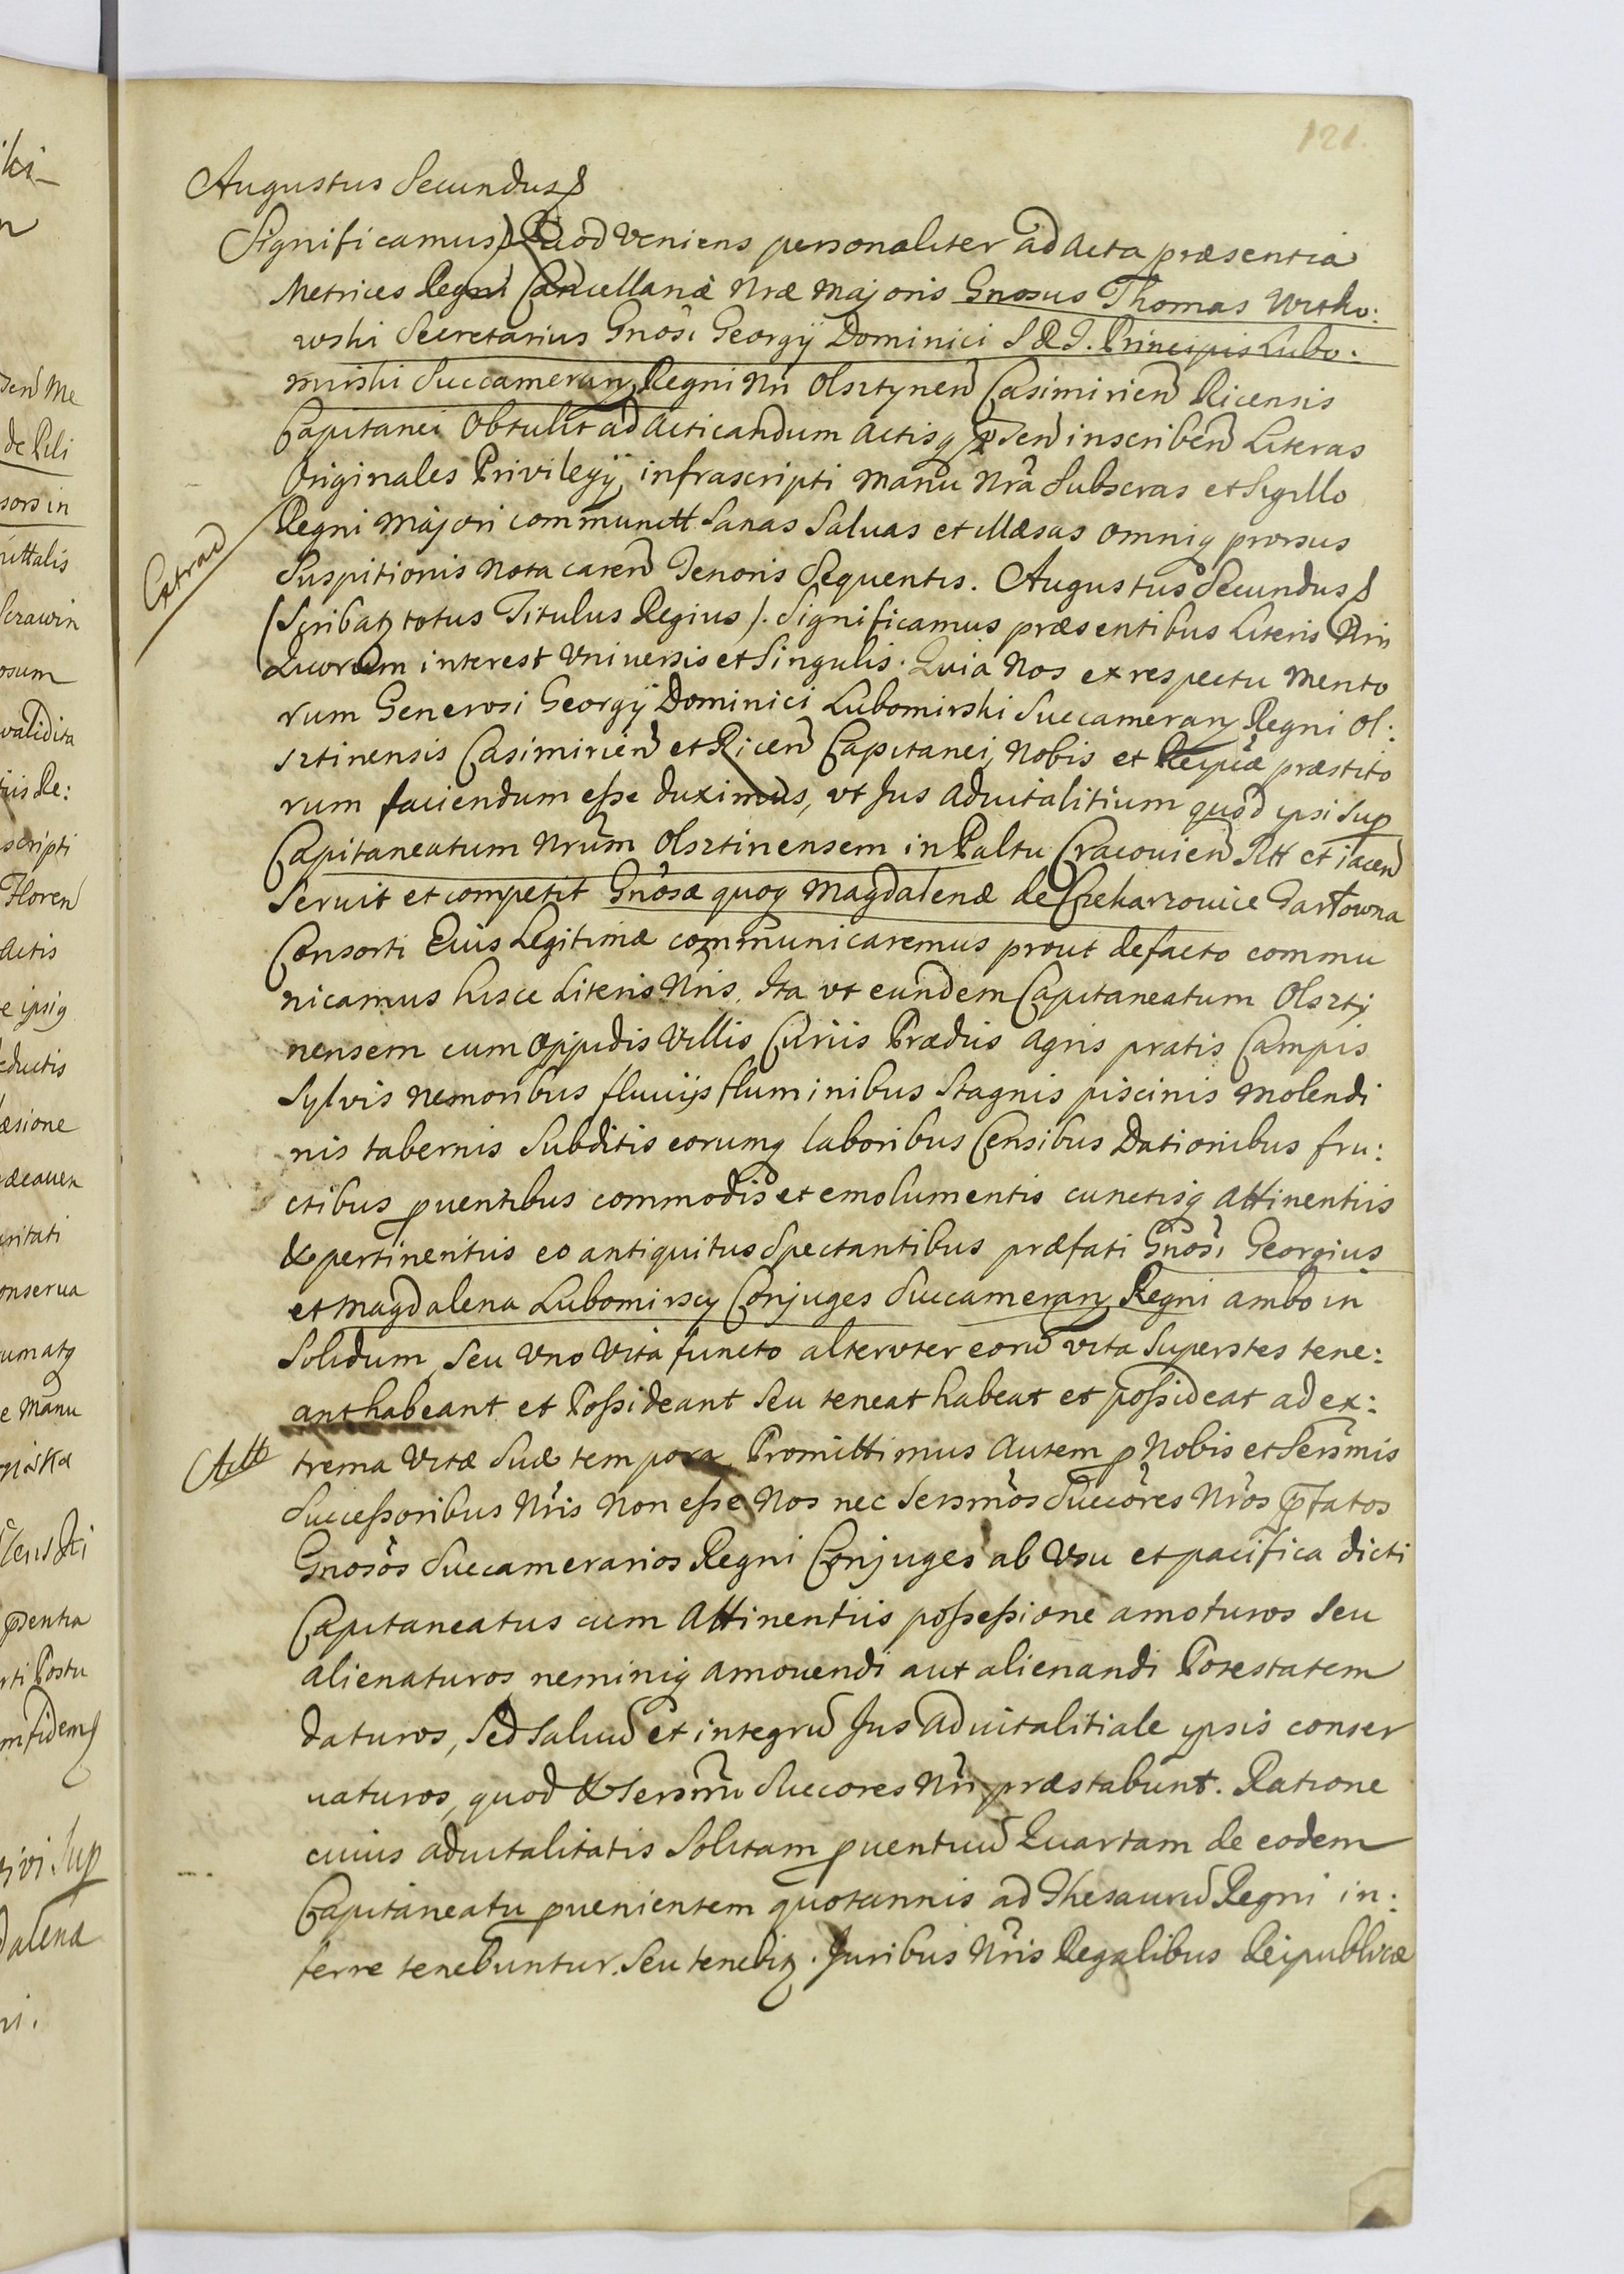 121.
Augustus Secundus
Significamus Quod Veniens personaliter ad Acta præsentia
Metrices Regni Cancellariæ Nræ Majoris Gnosus Thomas
wski Secretarius Gnosi Georgÿ Dominici S R I. Principis Lubo:
mirski Succamerarÿ Regni Nri Olsztynen Casimirien Ricensis
Capitanei Obtulit ad Acticandum Actisq pnsen inscriben Literas
Originales Privilegÿ, infrascripti Manu Nra Subscras et Sigillo
Regni Majori communitt Sanas Saluas et illæsas omniq prorsus
Extrad
Suspitionis nota caren Tenoris Sequentis. Augustus Secundus
(Scribatz totus Titulus Regius). Significamus præsentibus Literis Nris
Quorum interest Vniuersis et Singulis. Quia Nos ex respectu merito
rum Generosi Georgÿ Dominici Lubomirski Succamerarÿ Regni Ol:
sztinensis Casimirien et Ricen Capitanei, Nobis et Reipcæ præstito
rum faciendum esse duximus, vt Jus aduitalitium quod ipsi sup
Capitaneatum Nrum Olsztinensem in Paltu Cracouien Sitt et iacen
Seruit et competit Gnosæ quoq Magdalenæ de Czekarzouice Tartowna
Consorti Eius Legitimæ communicaremus prout de facto commu
nicamus hisce Literis Nris. Ita vt eundem Capitaneatum Olszty
nensem cum Oppidis Villis Curiis Prædiis Agris pratis Campis
Sylvis Nemoribus fluuijs fluminibus Stagnis piscinis Molendi
nis tabernis Subditis eorumq laboribus Censibus Dationibus fru:
ctibus puentibus commodis et emolumentis cunctisq Attinentiis
& pertinentiis eo antiquitus Spectantibus præfati Gnosi Georgius
et Magdalena Lubomirscy Conjuges Succamerarÿ Regni ambo in
Solidum, Seu Vno Vita functo alteruter eorū vita Superstes tene:
ant habeant et Possideant Seu teneat habeat et possideat ad ex:
trema Vitæ Suæ tempora. Promittimus autem p Nobis et Sersmis
Successoribus Nris Non esse Nos nec Sersmos Succores Nros pfatos
Gnosos Succamerarios Regni Conjuges ab Vsu et pacifica dicti
Capitaneatus cum Attinentiis possessione amoturos Seu
alienaturos neminiq amouendi aut alienandi Potestatem
daturos, Sed saluū et integrū Jus Aduitalitiale ipsis conser
uaturos, quod & Sersmi Succores Nri præstabunt. Ratione
cuius aduitalitatis Solitam puentuū Quartam de eodem
Capitaneatu puenientem quotannis ad Thesaurū Regni in:
ferre tenebuntur. Seu tenebitz. Juribus Nris Regalibus Reipublicæ